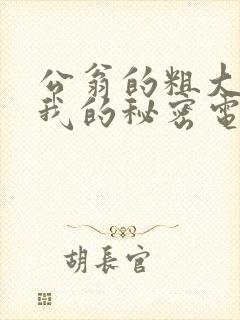 公翁的粗大
我的秘密電
胡長官